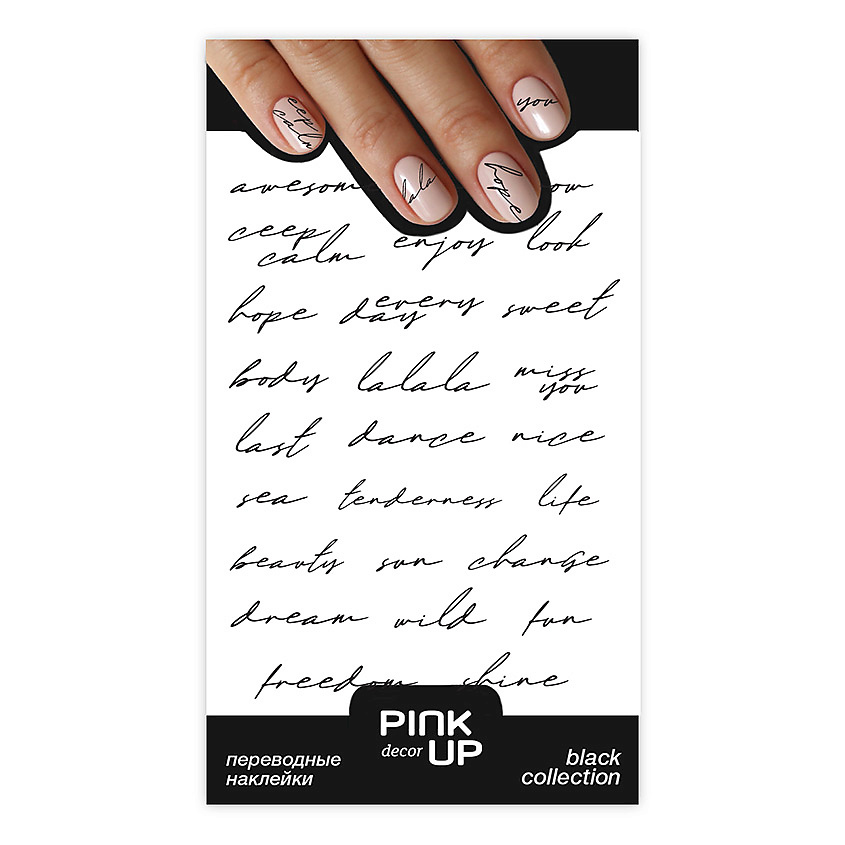 eep
calm
lala
hope
you
awesome ow
ceep
calm enjoy look
hope every
day sweet
body lalala miss
you
last dance nice
sea tenderness life
beauty sun change
dream wild fun
freedom shine
PINK
decor UP
переводные
наклейки
black
collection